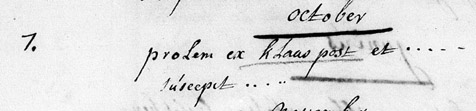 october
7. prolem ex klaas post et .....
suscepit ....